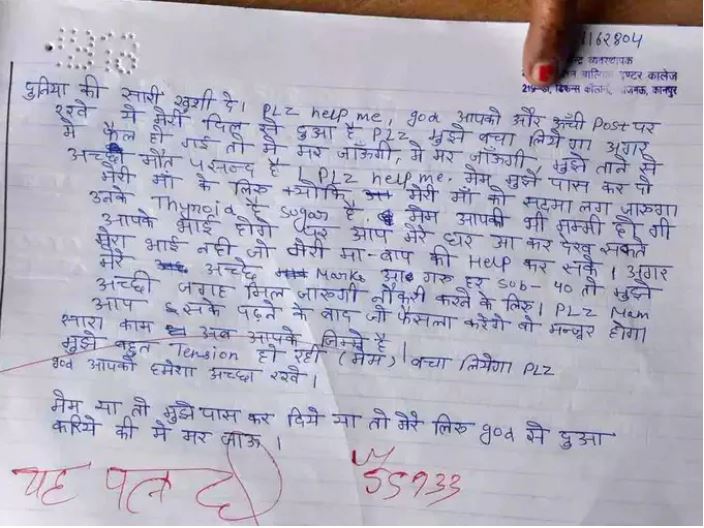 1162804
व्यवस्थापक
बालिका इण्टर कालेज
कानपुर
दुनिया की सारी खुशी दे। PLZ help me, god आपको और ऊँची Post पर
रखे ये मेरी दिल से दुआ है PLZ मुझे बचा लियेगा अगर
मे फेल हो गई तो मे मर जाँऊगी, मे मर जाँऊगी, मुझे ताने से
अच्छी मौत पसन्द है। PLZ help me. मेम मुझे पास कर दो
मेरी माँ के लिए क्योकि मेरी माँ को सदमा लग जाएगा
उनके Thyroid है sugar है. मेम आपकी भी मम्मी होगी
आपके भाई होगे पर आप मेरे घर आ कर देख सकते
मेरा भाई नही जो मेरी मा-बाप की Help कर सके। अगर
मेरे अच्छे Marks आ गए हर sub- 40 तो मुझे
अच्छी जगह मिल जाएगी नौकरी करने के लिए। PLZ Mam
आप इसके पढ़ने के बाद जो फैसला करेगे वो मन्जूर होगा
सारा काम अब आपके जिम्मे है।
मुझे बहुत Tension हो रही (मेम) बचा लियेगा PLZ
god आपको हमेशा अच्छा रखे।
मेम या तो मुझे पास कर दिये या तो मेरे लिए god से दुआ
करिये की मे मर जाऊ।
55933